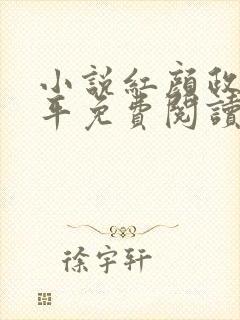 小說紅顏政
年免費閱讀
徐宇軒